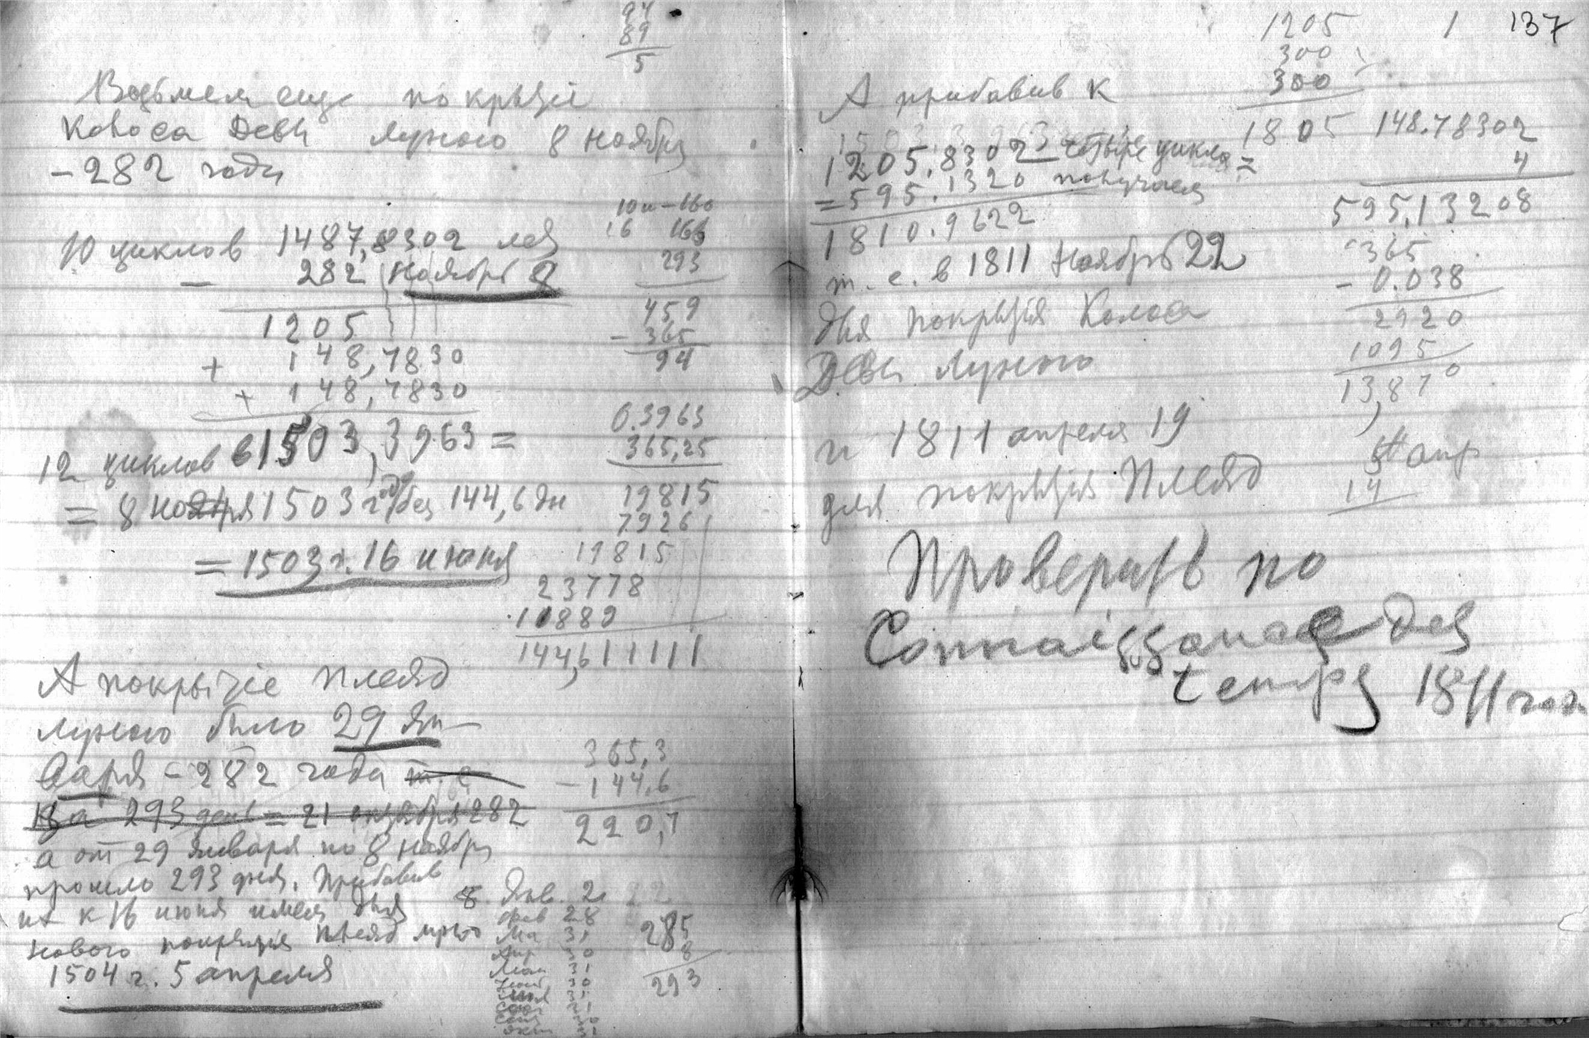 94
89
5
Возьмем еще покрытiе
Колоса Девы Луною 8 ноября
-282 года
10 ц — 160
16 166
293
459
- 365
94
10 циклов 1487,8302 лет
— 282 ноября 8
1205
+ 148,7830
+ 148,7830
12 циклов в 1503,3963 =
= 8 ноября 1503 года без 144,6 дн
= 1503 г. 16 июня
0.3963
365,25
19815
7926
19815
23778
11889
144,611111
А покрытiе Плеяд
Луною было 29 Ян-
варя -282 года т. е.
На 293 день = 21 октября 282
а от 29 Января по 8 ноября
прошло 293 дня. Прибавив
их к 16 июня имеем для
нового покрытiя Плеяд Луною
1504 г. 5 апреля
365,3
- 144,6
220,7
8 Янв 2
фев 28
Ма 31
Апр 30
Май 31
31
окт 31
285
8
293
137
1
1205
300
300
1805
А прибавив к
1205.8302 четыре цикла =
= 595.1320 получаем
1810.9622
т. е. в 1811 Ноябрь 22
для покрытiя Колоса
Девы Луною
и 1811 апреля 19
для покрытiя Плеяд
148.78302
4
595,13208
365
- 0.038
2920
1095
13,870
5 апр
14
Проверить по
Connaissance des
temps 1811 год